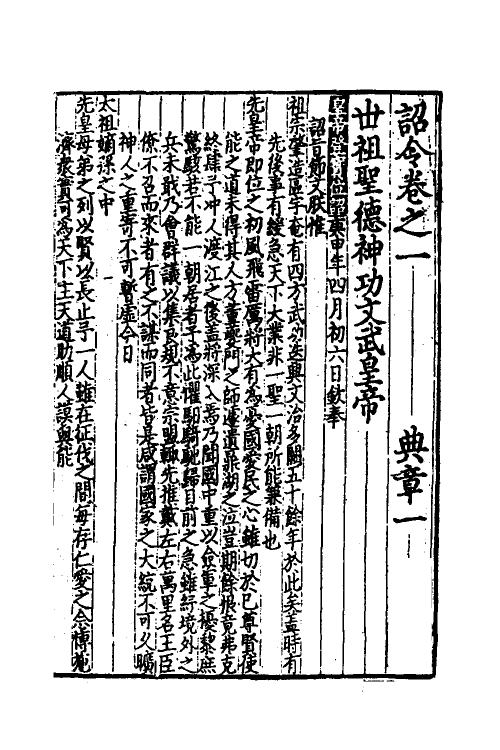 詔令卷之一　典章一
世祖聖德神功文武皇帝
皇帝登寶位詔庚申年四月初六日欽奉
詔旨節文朕惟
祖宗肇造區宇奄有四方武功迭興文治多闕五十餘年於此矣蓋時有
先後事有緩急天下大業非一聖一朝所能兼備也
先皇帝即位之初風飛雷厲將大有為憂國愛民之心雖切於己尊賢使
能之道未得其人方董夔門之師遽遺鼎湖之泣豈期餘恨竟弗克
終肆予冲人渡江之後蓋將深入焉乃聞國中重以僉軍之擾黎庶
驚駭若不能一朝居者予為此懼馹騎馳歸目前之急雖紓境外之
兵未戢乃會群議以集良規不意宗盟輒先推戴左右萬里名王臣
僚不召而來者有之不謀而同者皆是咸謂國家之大統不可久曠
神人之重寄不可暫虛今日
太祖嫡孫之中
先皇母弟之列以賢以長止予一人雖在征伐之間每存仁愛之念博施
濟衆實可為天下主天道助順人謨與能